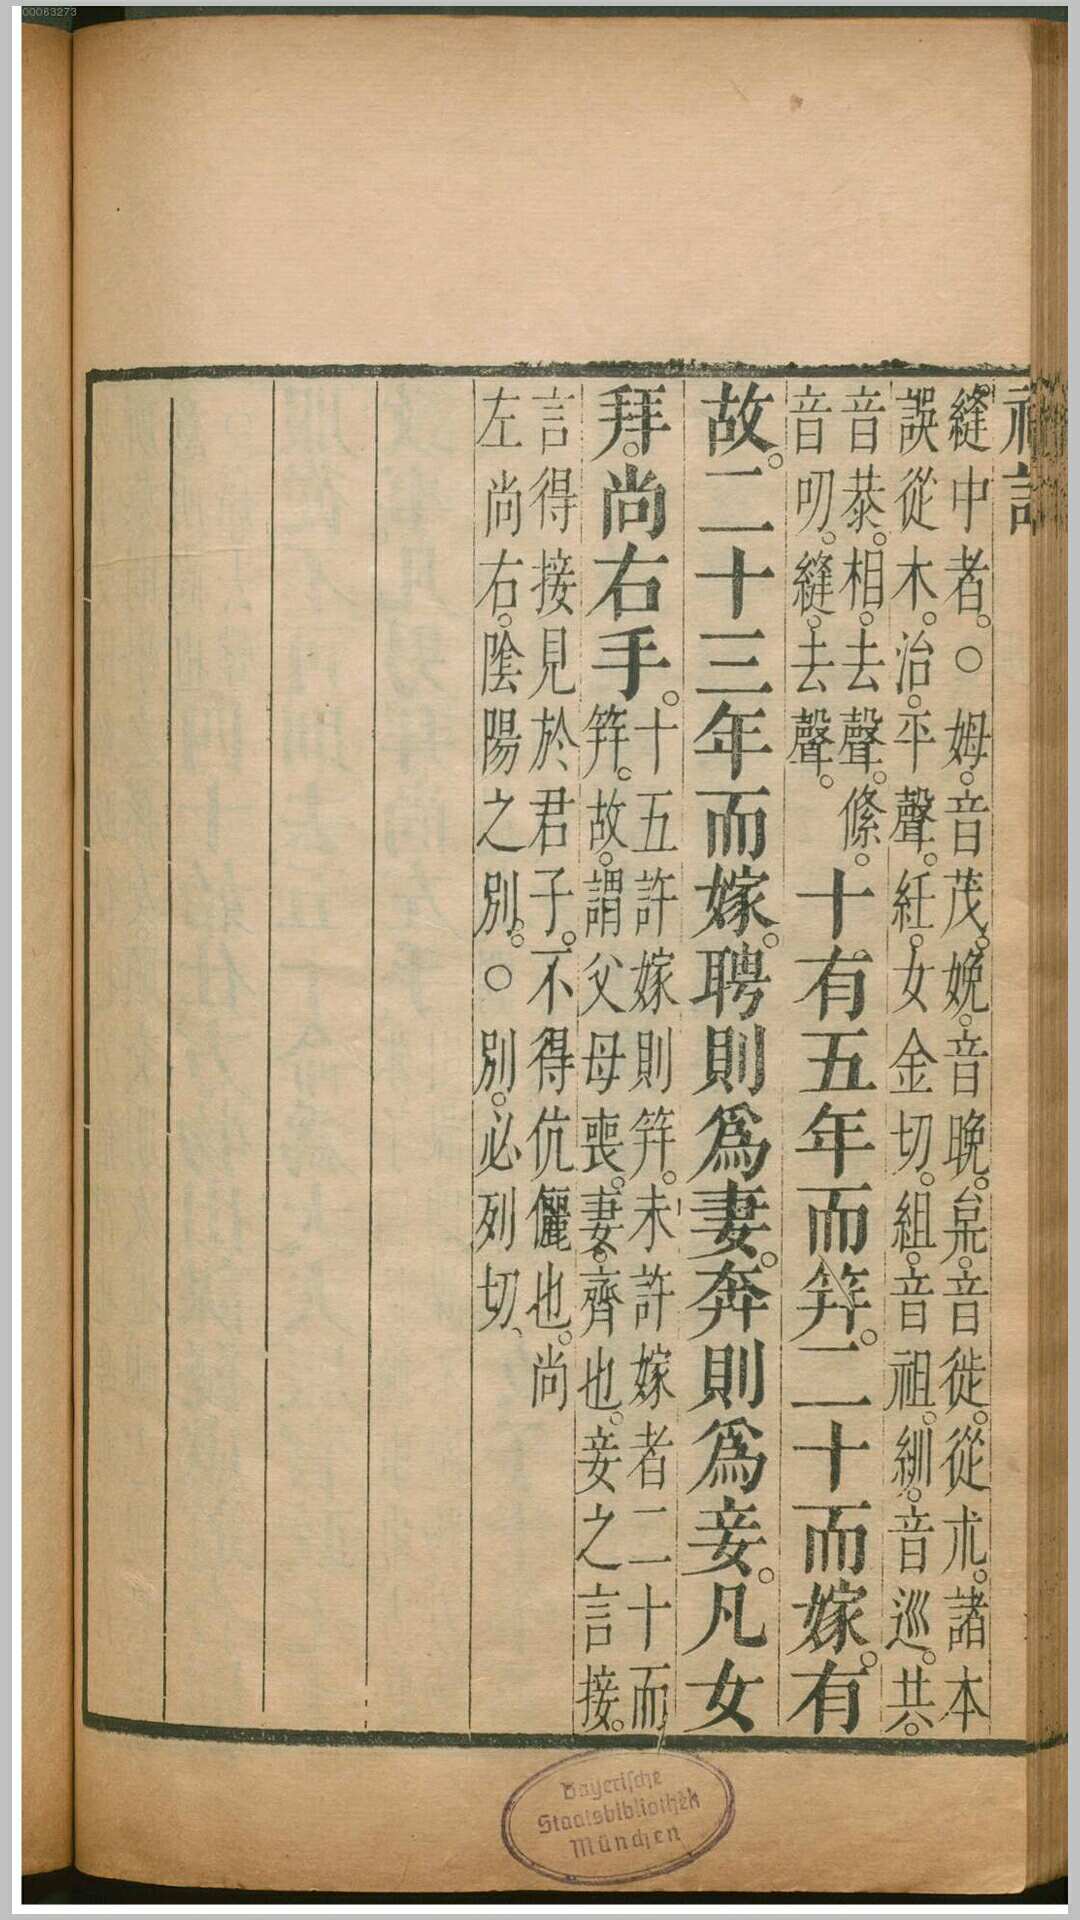 縫中者。○姆。音茂。娩。音晩。枲。音徙。從朮。諸本
誤從木。治。平聲。紝。女金切。組。音祖。紃。音巡。共。
音恭。相。去聲。絛。
音叨。縫。去聲。
十有五年而筓。二十而嫁。有
故。二十三年而嫁。聘則爲妻。奔則爲妾。凡女
拜。尚右手。
十五許嫁則筓。未許嫁者二十而
筓。故。謂父母喪。妻。齊也。妾之言接。
言得接見於君子。不得伉儷也。尚
左尚右。陰陽之別。○別。必列切、
Bayerische
Staatsbibliothek
München
00063273